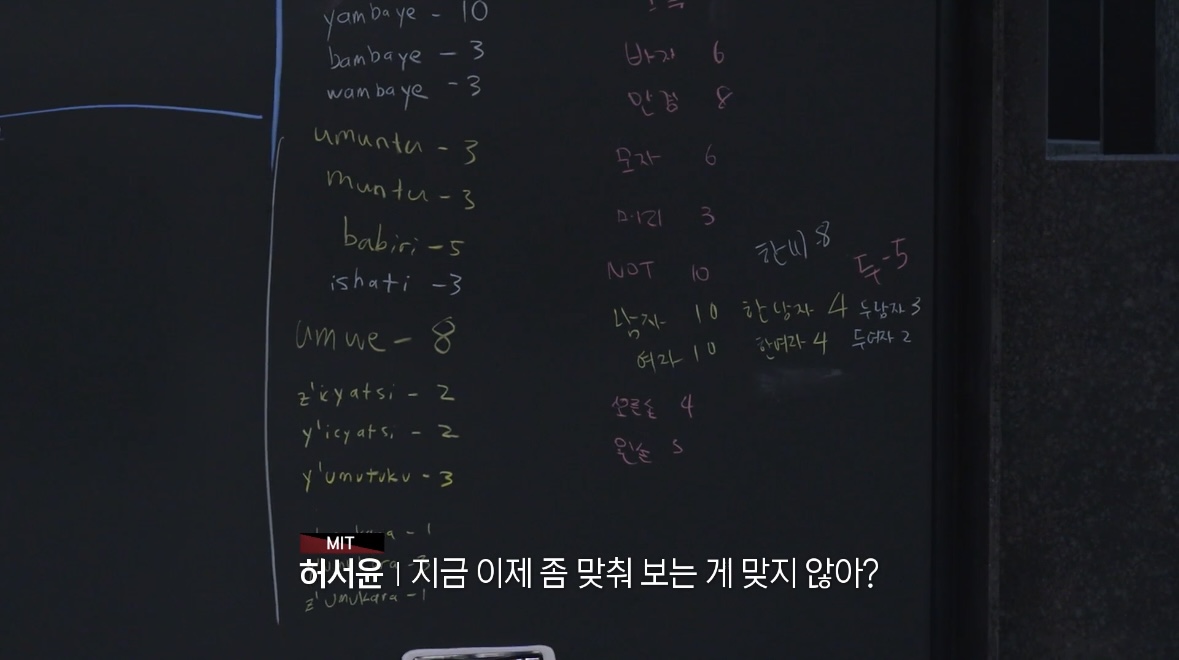 yambaye - 10
bambaye - 3
wambaye - 3
umuntu - 3
muntu - 3
babiri - 5
ishati - 3
umwe - 8
z'icyatsi - 2
y'icyatsi - 2
y'umutuku - 3
z'umukara - 1
바지 6
안경 8
모자 6
머리 3
NOT 10
한씨 - 8
두 - 5
남자 10 한남자 4 두남자 3
여자 10 한여자 4 두여자 2
오른손 4
왼손 5
MIT
허서윤 | 지금 이제 좀 맞춰 보는 게 맞지 않아?